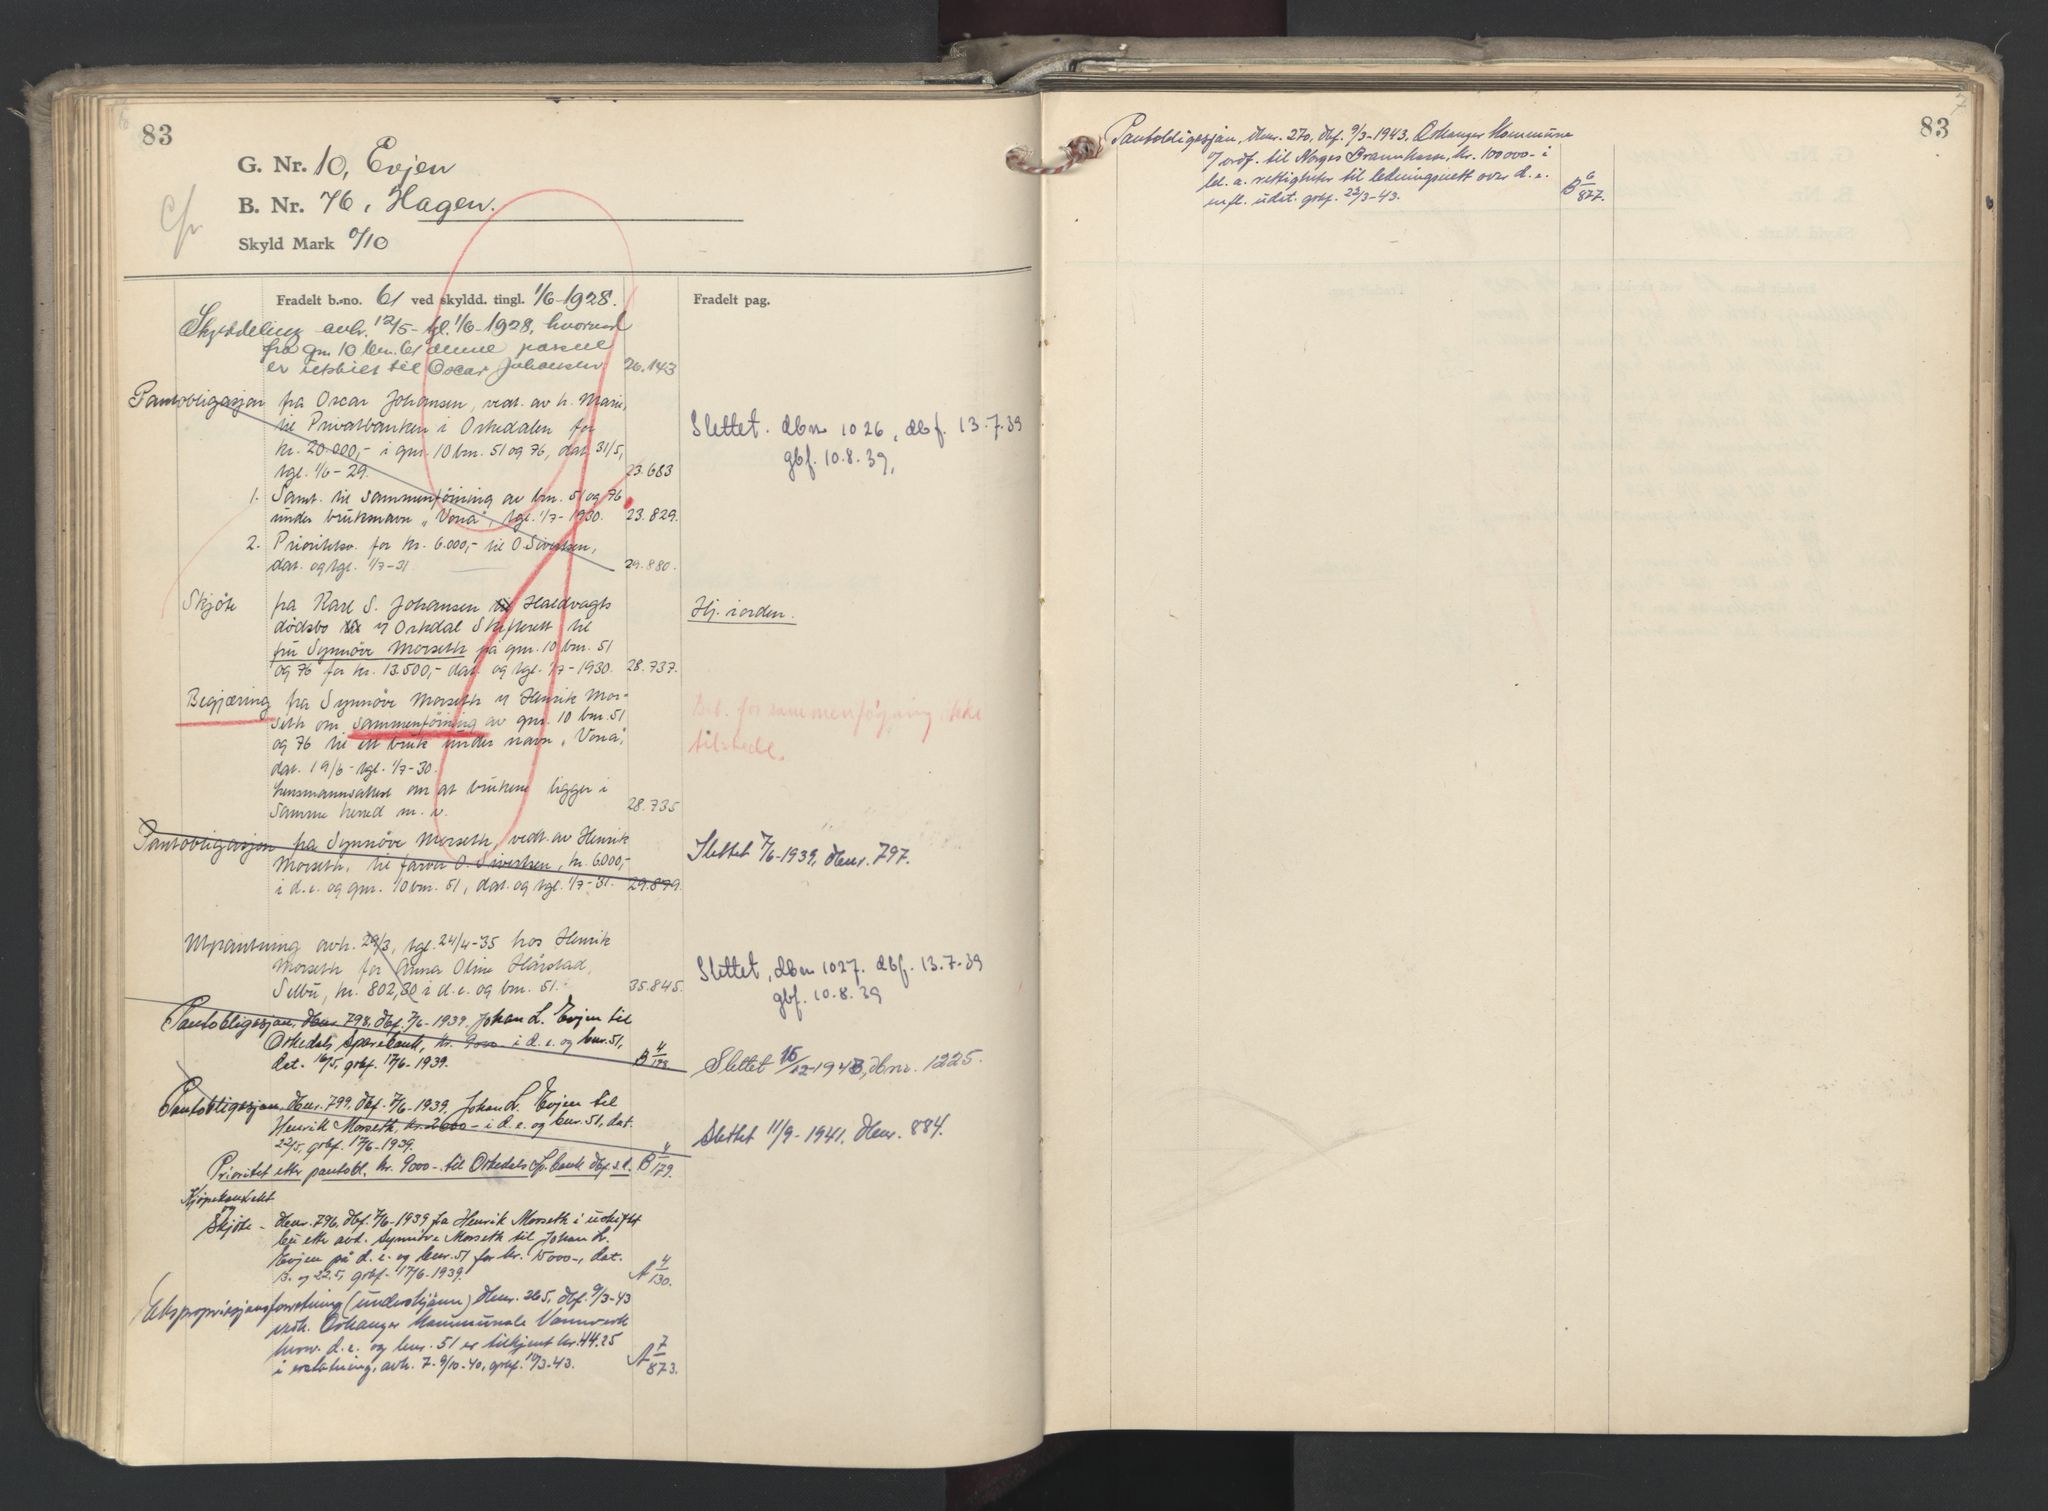 83
G. Nr. 10, Evjen
B. Nr. 76, Hagen.
Skyld Mark 0/10
Fradelt b.-no. 61 ved skyldd. tingl. 1/6-1928.
Fradelt pag.
Skylddeling avh. 12/5- tgl. 1/6-1928, hvorved
fra gnr. 10 bnr. 61 denne parsell
er utskilt til Oscar Johansen 26.143
Pantobligasjon fra Oscar Johansen, vedt. av h. Marie,
til Privatbanken i Orkedalen for
kr. 20.000,- i gnr. 10 bnr. 51 og 76, dat. 31/5,
tgl. 1/6-29. 23.683
Slettet. dbnr 1026, dbf. 13.7.39
gbf. 10.8.39,
1. Samt. til sammenföining av bnr. 51 og 76
under bruksnavn „Vona", tgl. 1/7-1930. 23.829.
2. Prioritetsv. for kr. 6.000,- til O. Sivertsen,
dat. og tgl. 1/7-31. 29.880.
Skjöte fra Karl S. Johansen Haldvagts
dödsbo v/ Orkdal Skifterett til
fru Synnöve Morseth på gnr. 10 bnr. 51
og 76 for kr. 13.500,- dat. og tgl. 1/7-1930. 28.737.
Hj. i orden.
Begjæring fra Synnöve Morseth v/ Henrik Mor-
seth om sammenföining av gnr. 10 bnr. 51
og 76 til ett bruk under navn „Vona",
dat. 19/6- tgl. 1/7-30.
Lensmannsattest om at brukene ligger i
samme herred m. v. 28.735
Bet. for sammenføyning ikke
tilstede.
Pantobligasjon fra Synnöve Morseth, vedt. av Henrik
Morseth, til farver O. Sivertsen, kr. 6000,-
i d. e. og gnr. 10 bnr. 51, dat. og tgl. 1/7-31. 29.879.
Slettet 7/6-1939, dbnr. 797.
Utpantning avh. 29/3, tgl. 24/4-35 hos Henrik
Morseth for Anna Oline Hårstad,
Selbu, kr. 802,30 i d. e. og bnr. 51. 35.845.
Slettet, dbnr 1027. dbf. 13.7-39
gbf. 10.8.39
Pantobligasjon, dbnr. 798, dbf. 7/6-1939. Johan L. Evjen til
Orkedals Sparebank, kr. 9000- i d. e. og bnr. 51,
dat. 16/5, gbf. 17/6-1939. B 4/178
Slettet 15/12-1943, dbnr. 1225.
Pantobligasjon, dbnr. 799, dbf. 7/6-1939. Johan L. Evjen til
Henrik Morseth, kr. 2600- i d. e. og bnr. 51, dat.
22/5, gbf. 17/6-1939.
Prioritet etter pantobl. kr. 9000- til Orkedals Sp.bank dbf. s. d. B 4/179.
Slettet 11/9-1941. dbnr. 884.
Kjøpekontrakt
og
Skjøte - dbnr. 796, dbf. 7/6-1939 fra Henrik Morseth i uskiftet
bu etter avd. Synnöve Morseth til Johan L.
Evjen på d. e. og bnr. 51 for kr. 15000-, dat.
13. og 22.5, gbf. 17/6-1939. A 4/130.
Ekspropriasjonsforretning (underskjønn) dbnr. 265, dbf. 9/3-43
vedk. Orkanger Kommunale Vannverk
hvorv. d. e. og bnr. 51 er tilkjent kr. 44.25
i erstatning, avh. 7.-9/10-40, gbf. 10/3-43. A 7/873.
83
Pantobligasjon, dbnr. 270, dbf. 9/3-1943. Orkanger Kommune
v/ ordf. til Norges Brannkasse, kr. 100000- i
bl. a. rettigheter til ledningsnett over d. e.
m.fl. utst. gbf. 23/3-43. B 6/877.